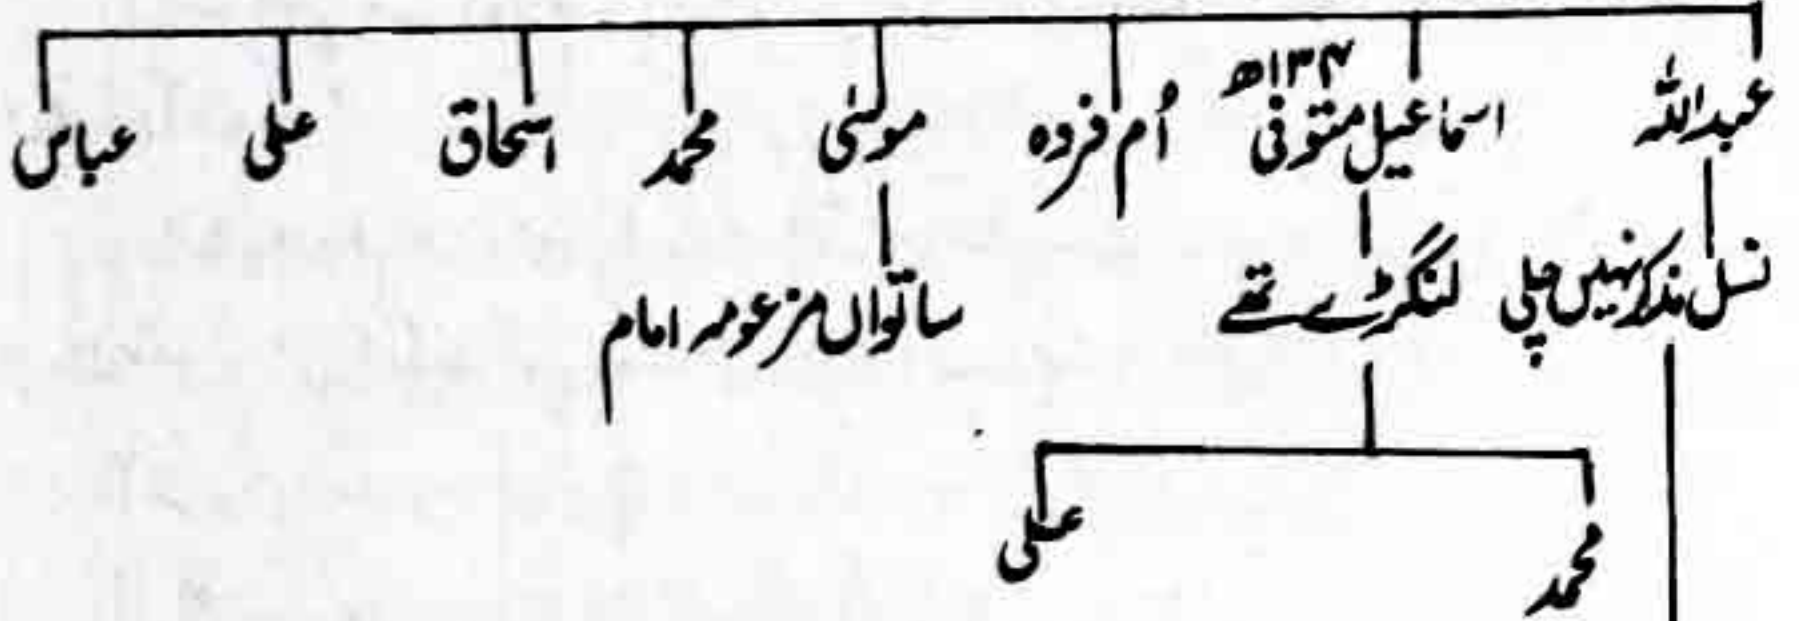 عبداللہ اسماعیل متوفی ۱۳۴ھ اُم فردہ موسٰی محمد اسحاق علی عباس
نسل مذکر نہیں چلی لنگڑے تھے ساتواں مزعومہ امام
محمد علی